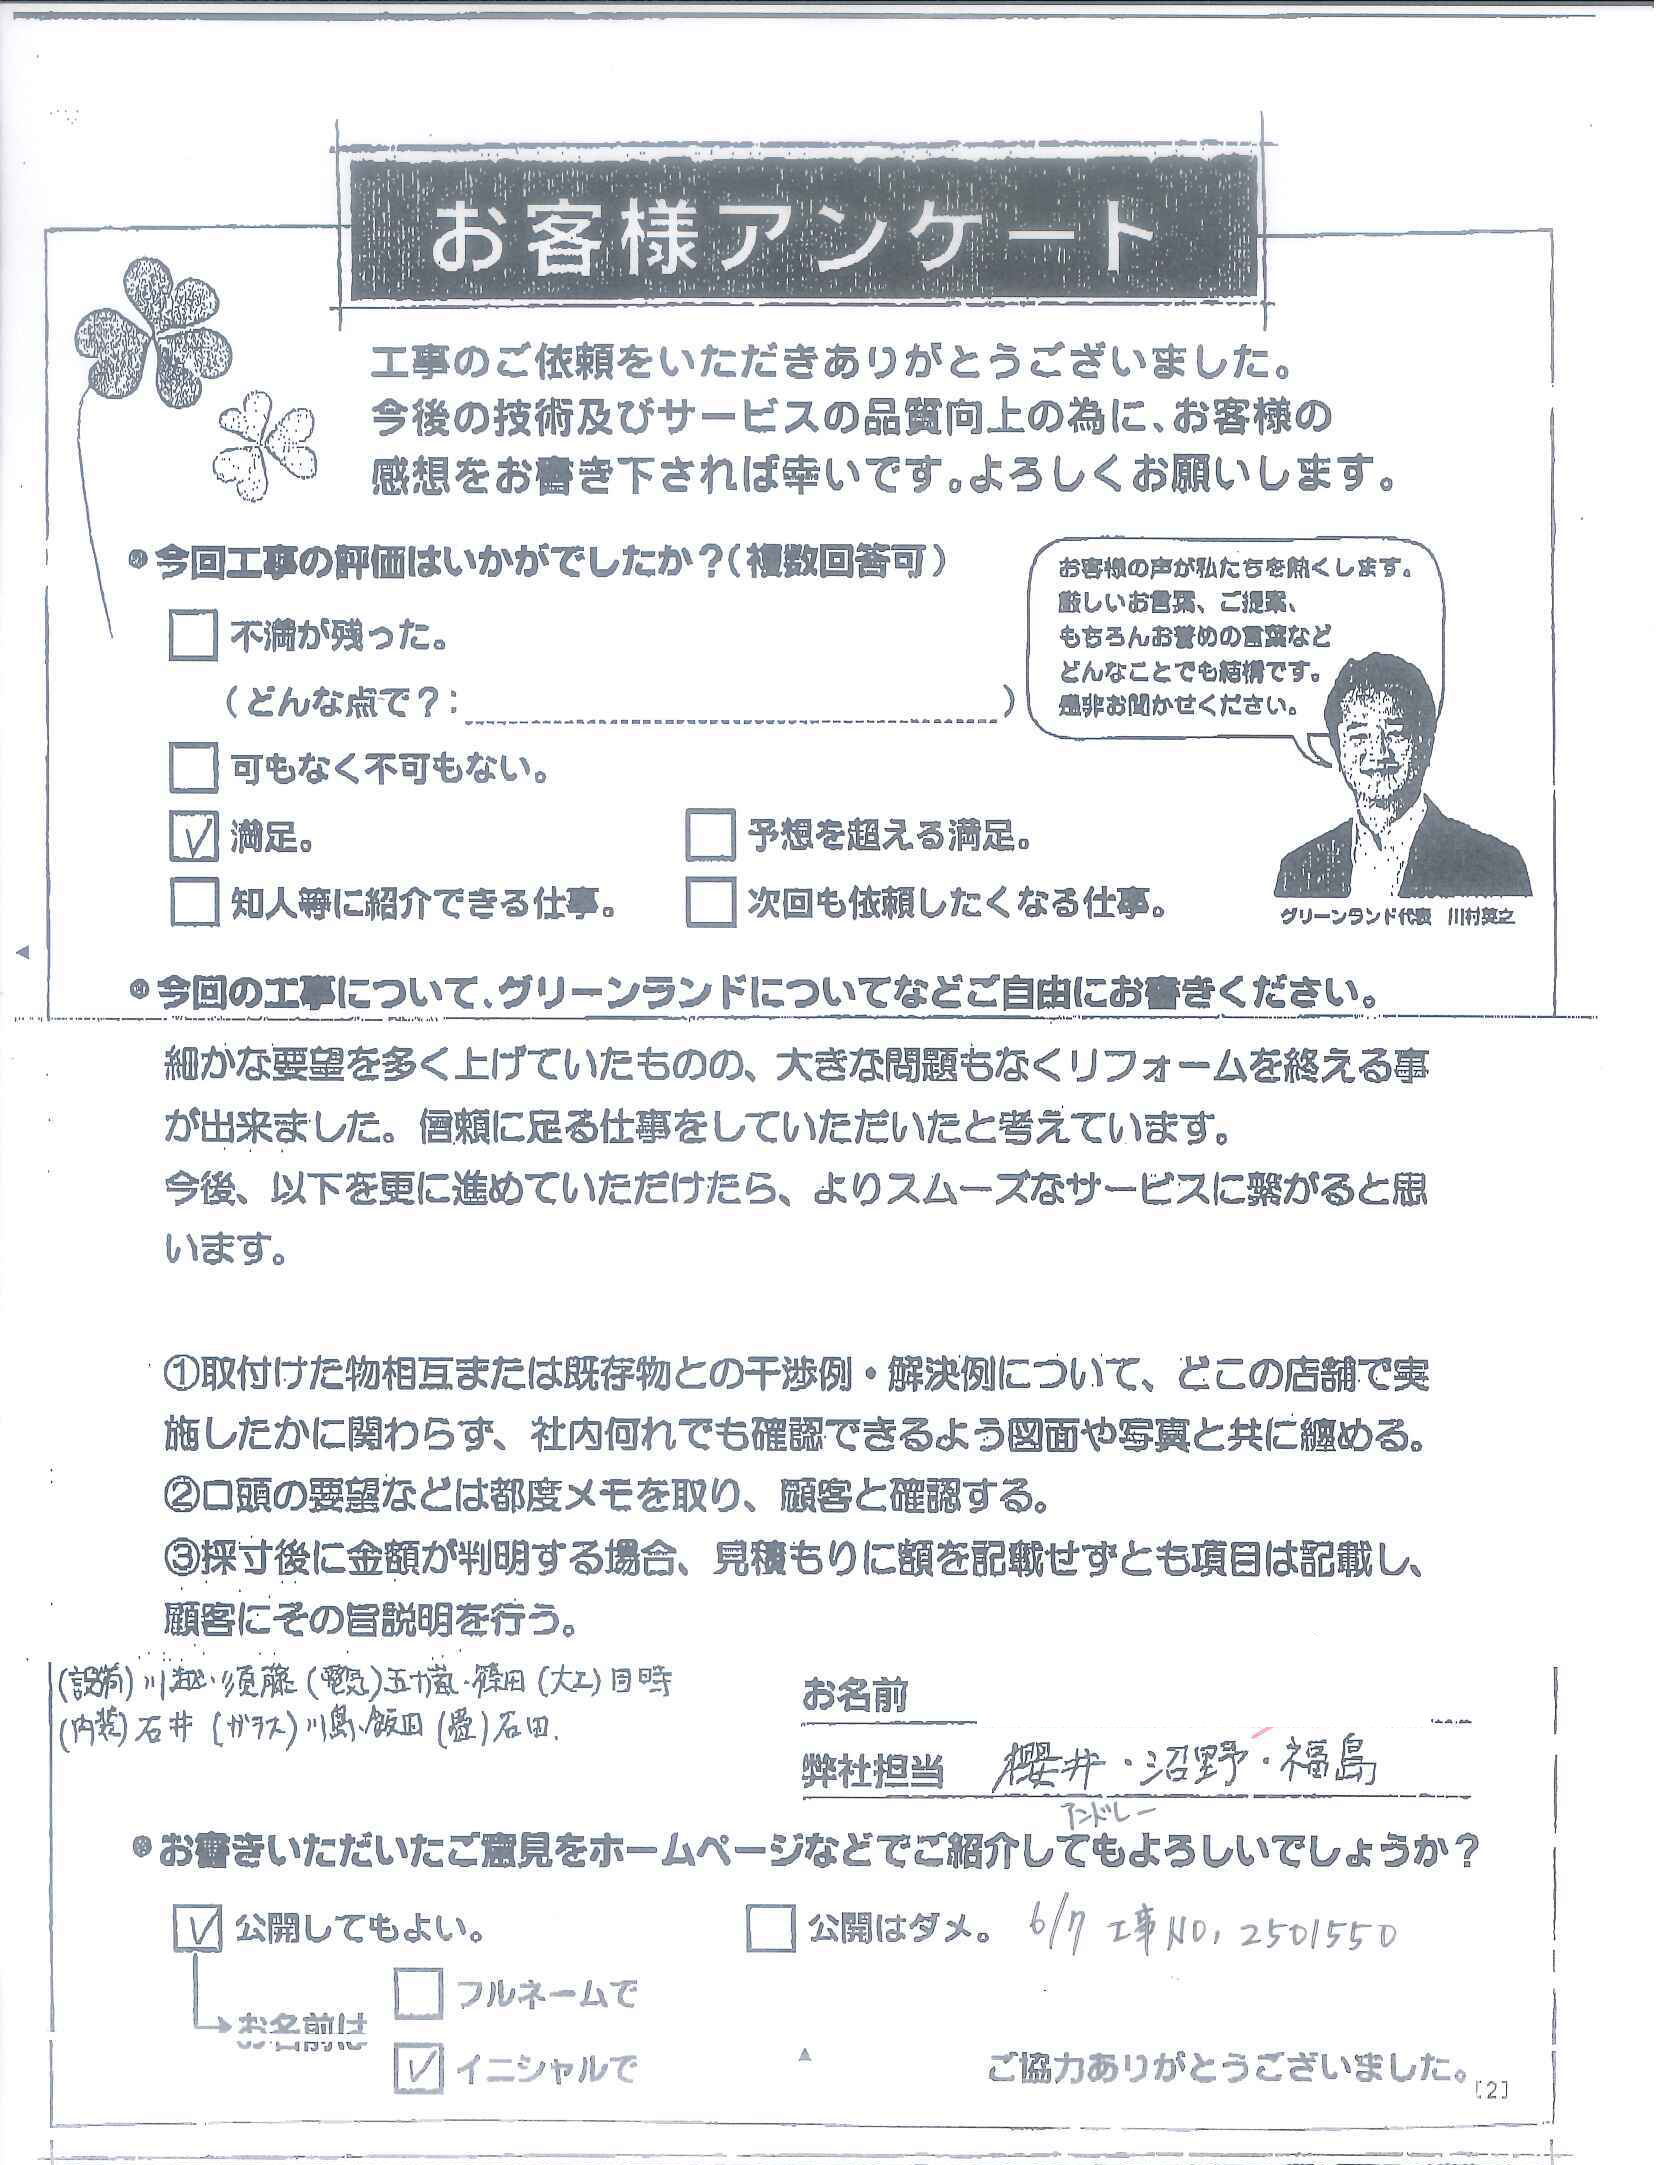 お客様アンケート
工事のご依頼をいただきありがとうございました。
今後の技術及びサービスの品質向上の為に、お客様の
感想をお書き下されば幸いです。よろしくお願いします。
今回工事の評価はいかがでしたか？(複数回答可)
不満が残った。
(どんな点で？: )
可もなく不可もない。
満足。
予想を超える満足。
知人等に紹介できる仕事。
次回も依頼したくなる仕事。
お客様の声が私たちを熱くします。
厳しいお言葉、ご提案、
もちろんお誉めの言葉など
どんなことでも結構です。
是非お聞かせください。
グリーンランド代表 川村英之
今回の工事について、グリーンランドについてなどご自由にお書きください。
細かな要望を多く上げていたものの、大きな問題もなくリフォームを終える事
が出来ました。信頼に足る仕事をしていただいたと考えています。
今後、以下を更に進めていただけたら、よりスムーズなサービスに繋がると思
います。
①取付けた物相互または既存物との干渉例・解決例について、どこの店舗で実
施したかに関わらず、社内何れでも確認できるよう図面や写真と共に纏める。
②口頭の要望などは都度メモを取り、顧客と確認する。
③採寸後に金額が判明する場合、見積もりに額を記載せずとも項目は記載し、
顧客にその旨説明を行う。
(設備)川越・須藤(電気)五十嵐・篠田(大工)目時
(内装)石井(ガラス)川島・飯田(畳)石田.
お名前
弊社担当 櫻井・沼野・福島
アンドレー
お書きいただいたご意見をホームページなどでご紹介してもよろしいでしょうか？
公開してもよい。
公開はダメ。 6/7 工事NO. 2501550
フルネームで
お名前は
イニシャルで
ご協力ありがとうございました。
[2]